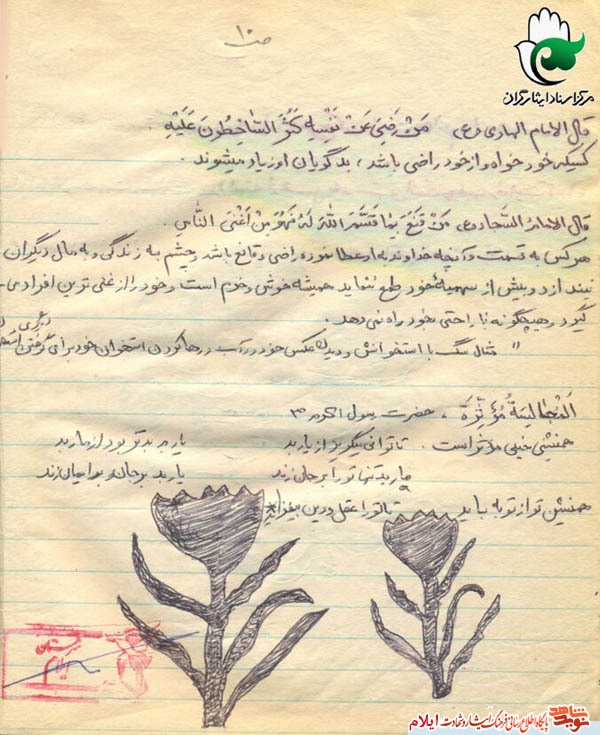 ص ۱۰
مرکز اسناد ایثارگران
قال الامام الهادی (ع) مَنْ رَضِیَ عَنْ نَفْسِهِ کَثُرَ السّاخِطُونَ عَلَیْهِ
کسیکه خود خواه و از خود راضی باشد، بدگویان او زیاد میشوند.
قال الامامُ السَّجاد (ع) مَنْ قَنَعَ بِما قَسَّمَ اللّهُ لَهُ فَهُوَ مِنْ اَغْنَی النّاسِ.
هرکس به قسمت و آنچه خداوند به او عطا نموده راضی و قانع باشد و چشم به زندگی و به مال دیگران
نیندازد و بیش از سهمیهٔ خود طمع ننماید همیشه خوش و خرم است و خود را از غنی ترین افراد می
گیرد و هیچگونه ناراحتی بخود راه نمی دهد.
" مثال سگ با استخوانش و دیدن عکس خود در آب و رها کردن استخوان خود برای گرفتن استخوان دیگری
اَلْمُجالِسَةُ مُؤَثِّرَةَ، حضرت رسول اکرم ص
همنشینی خیلی مؤثر است. تا توانی میگریز از یار بد یار بد بدتر بود از مار بد
مار بد تنها تو را بر جان زند یار بد بر جان و بر ایمان زند
همنشین تو از تو به باید تا تو را عقل و دین بیفزاید
لرستان
ایلام
نوید شاهد پایگاه اطلاع رسانی فرهنگ ایثار و شهادت ایلام